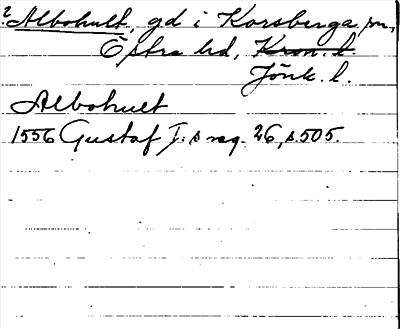 ? Albohult, gd i Korsberga sn,
Östra hd, Kron. l.
Jönk. l.
Albohult
1556 Gustaf I:s reg. 26, s. 505.